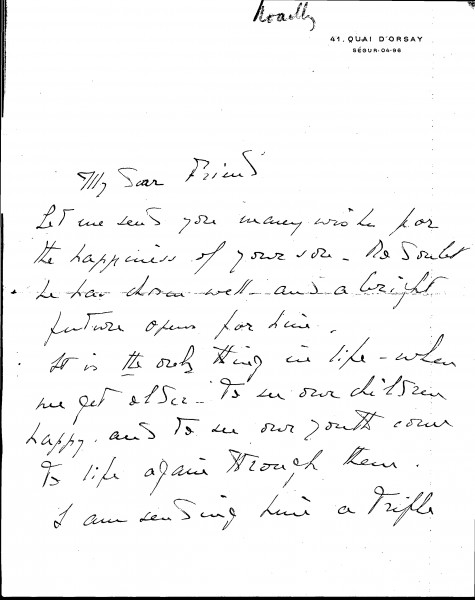 Noailly
41. QUAI D'ORSAY
SÉGUR. 04-96
My dear Friend
Let me send you many wishes for
the happiness of your son - No doubt
he has chosen well - and a bright
future opens for him.
It is the only thing in life - when
we get older - to see our children
happy. and to see our youth come
to life again through them.
I am sending him a trifle